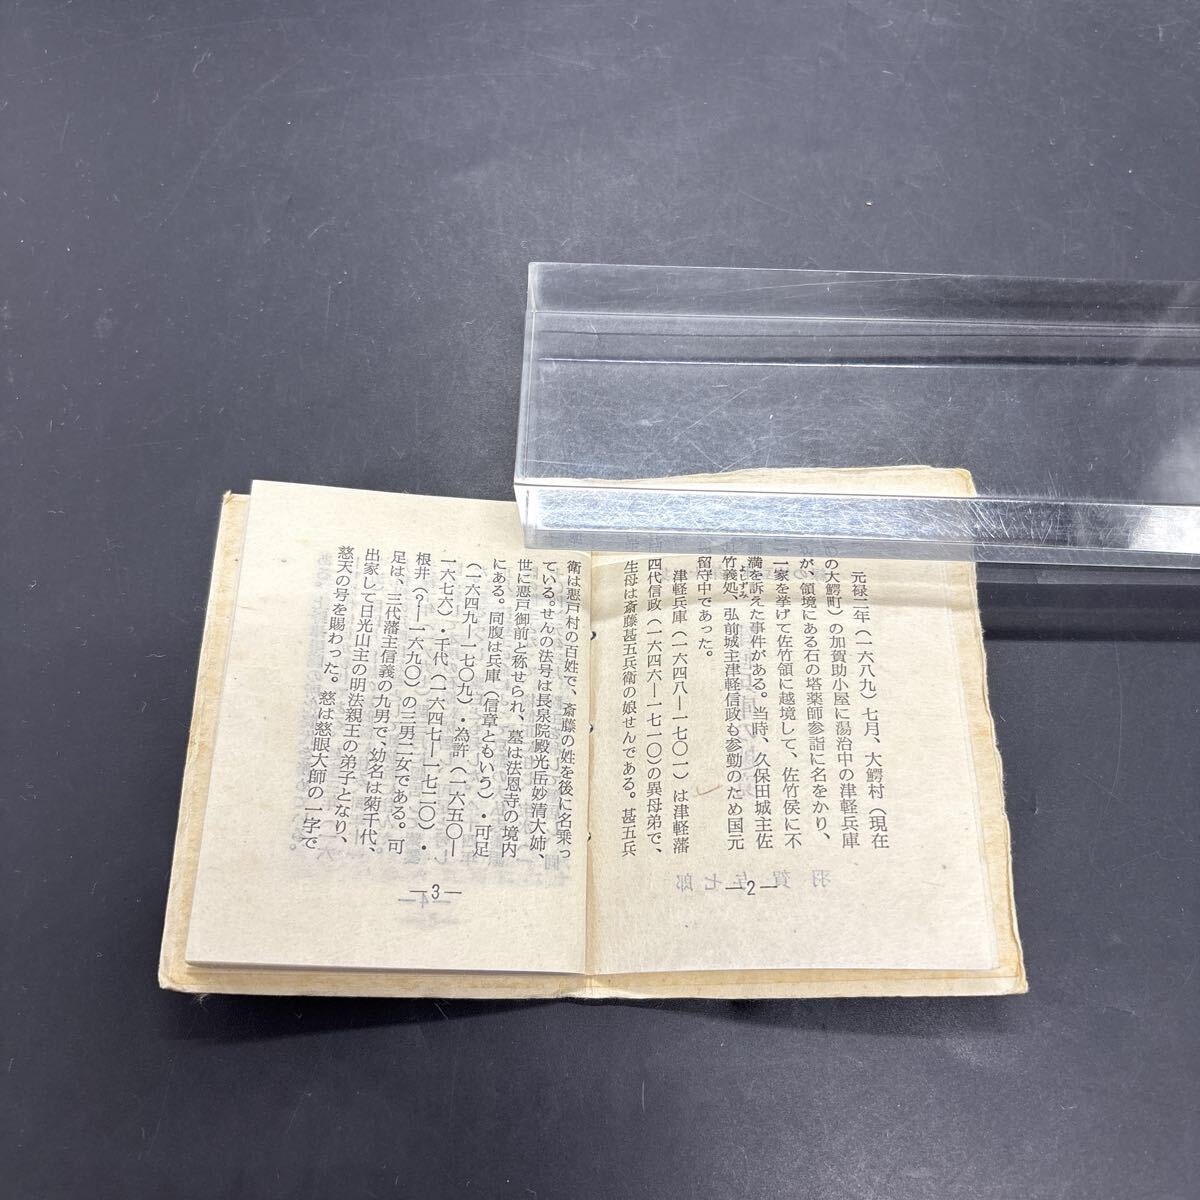 元禄二年（一六八九）七月、大鰐村（現在
の大鰐町）の加賀助小屋に湯治中の津軽兵庫
が、領境にある石の塔薬師参詣に名をかり、
一家を挙げて佐竹領に越境して、佐竹侯に不
満を訴えた事件がある。当時、久保田城主佐
竹義処、弘前城主津軽信政も参勤のため国元
よしずみ
留守中であった。
津軽兵庫（一六四八―一七〇一）は津軽藩
四代信政（一六四六―一七一〇）の異母弟で、
生母は斎藤甚五兵衛の娘せんである。甚五兵
―2―
衛は悪戸村の百姓で、斎藤の姓を後に名乗っ
ている。せんの法号は長泉院殿光岳妙清大姉、
世に悪戸御前と称せられ、墓は法恩寺の境内
にある。同腹は兵庫（信章ともいう）・可足
（一六四九―一七〇九）・為許（一六五〇―
一六七六）・千代（一六四七―一七二〇）・
根井（？―一六九〇）の三男二女である。可
足は、三代藩主信義の九男で、幼名は菊千代、
出家して日光山主の明法親王の弟子となり、
慈天の号を賜わった。慈は慈眼大師の一字で
―3―